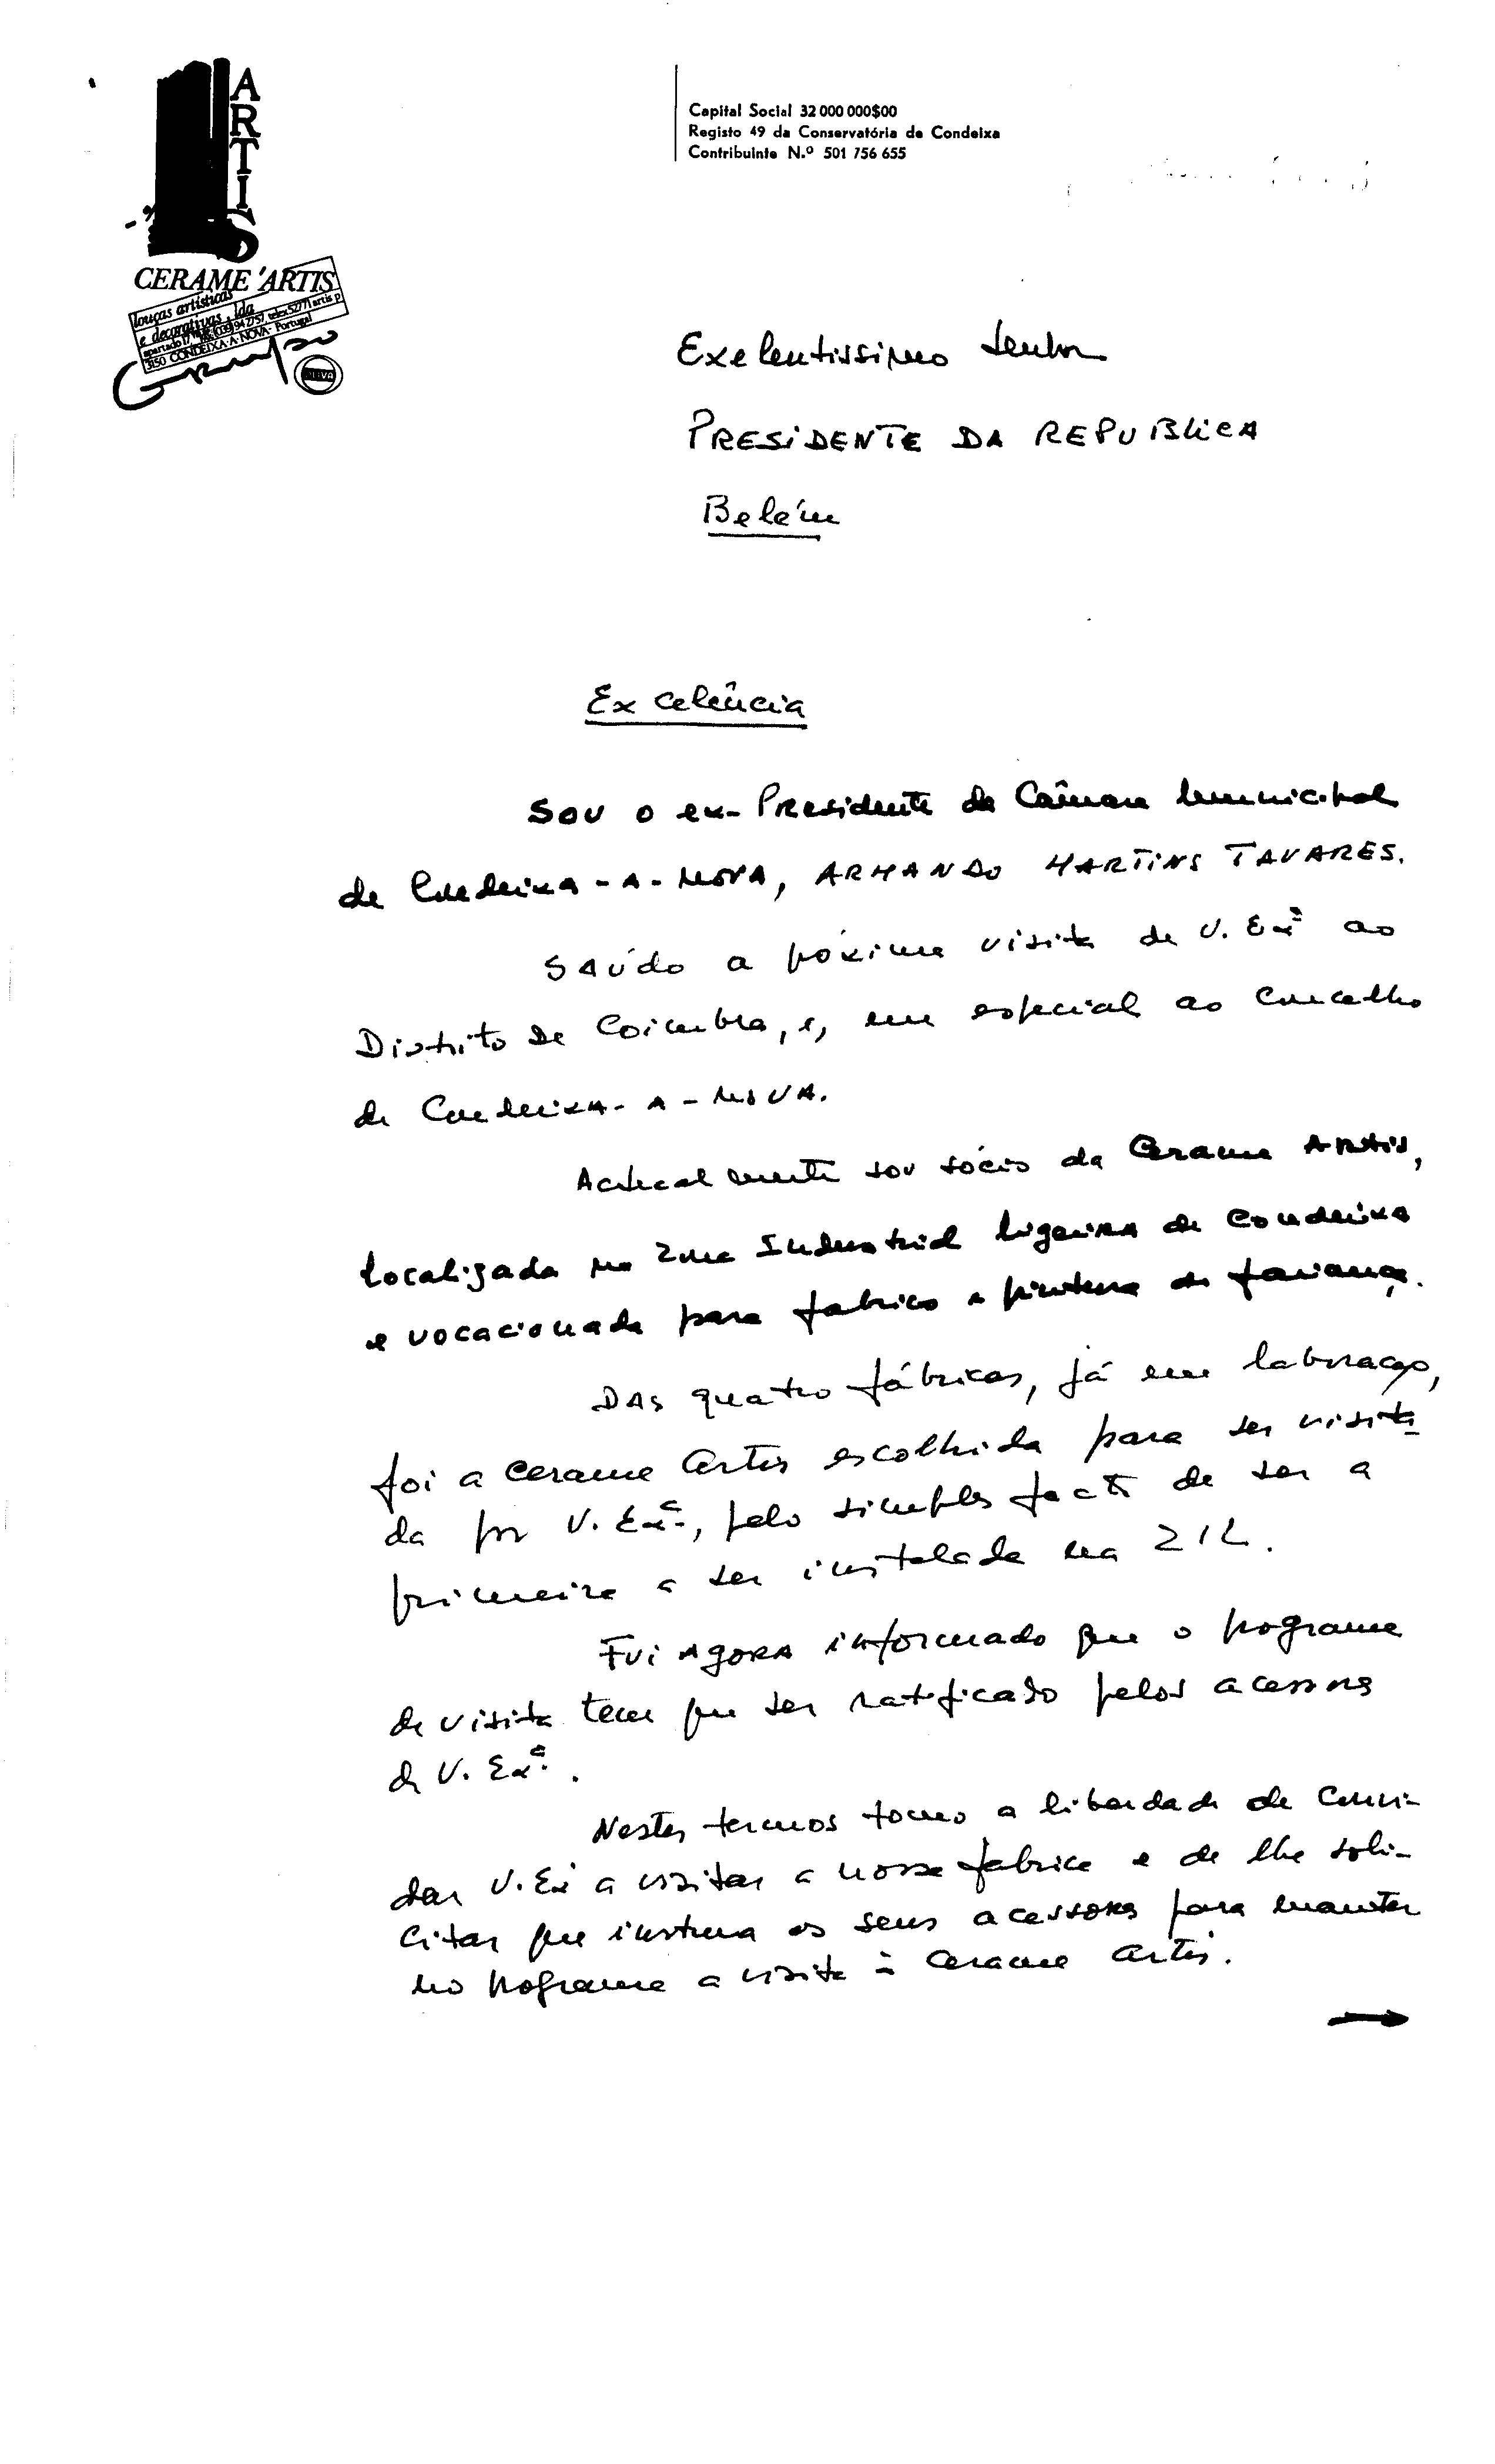 ARTIS
CERAME 'ARTIS
louças artísticas
e decorativas, lda
3150 CONDEIXA-A-NOVA - Portugal
Capital Social 32 000 000$00
Registo 49 da Conservatória de Condeixa
Contribuinte N.º 501 756 655
Exelentissimo Senhor
PRESIDENTE DA REPUBLICA
Belém
Excelência
Sou o ex-Presidente da Câmara Municipal
de Condeixa-A-NOVA, ARMANDO MARTINS TAVARES.
SAúdo a póxima visita de V. Exª ao
Distrito de Coimbra, e, em especial ao Concelho
de Condeixa-A-NOVA.
Actualmente sou sócio da Cerame Artis,
localizada na Zona Industrial ligeira de Condeixa
e vocacionada para fabrico e pintura de faiança.
DAS quatro fábricas, já em laboraçao,
foi a Cerame Artis escolhida para ser visita
da por V. Exª., pelo simples facto de ser a
primeira a ser instalada na ZIL.
Fui AGORA informado que o pograma
de visita tem que ser ratificado pelos acessores
de V. Exª.
Nestes termos tomo a liberdade de convi-
dar V. Exª a visitar a nossa fabrica e de lhe soli-
citar que instrua os seus acessores para manter
no pograma a visita à Cerame Artis.